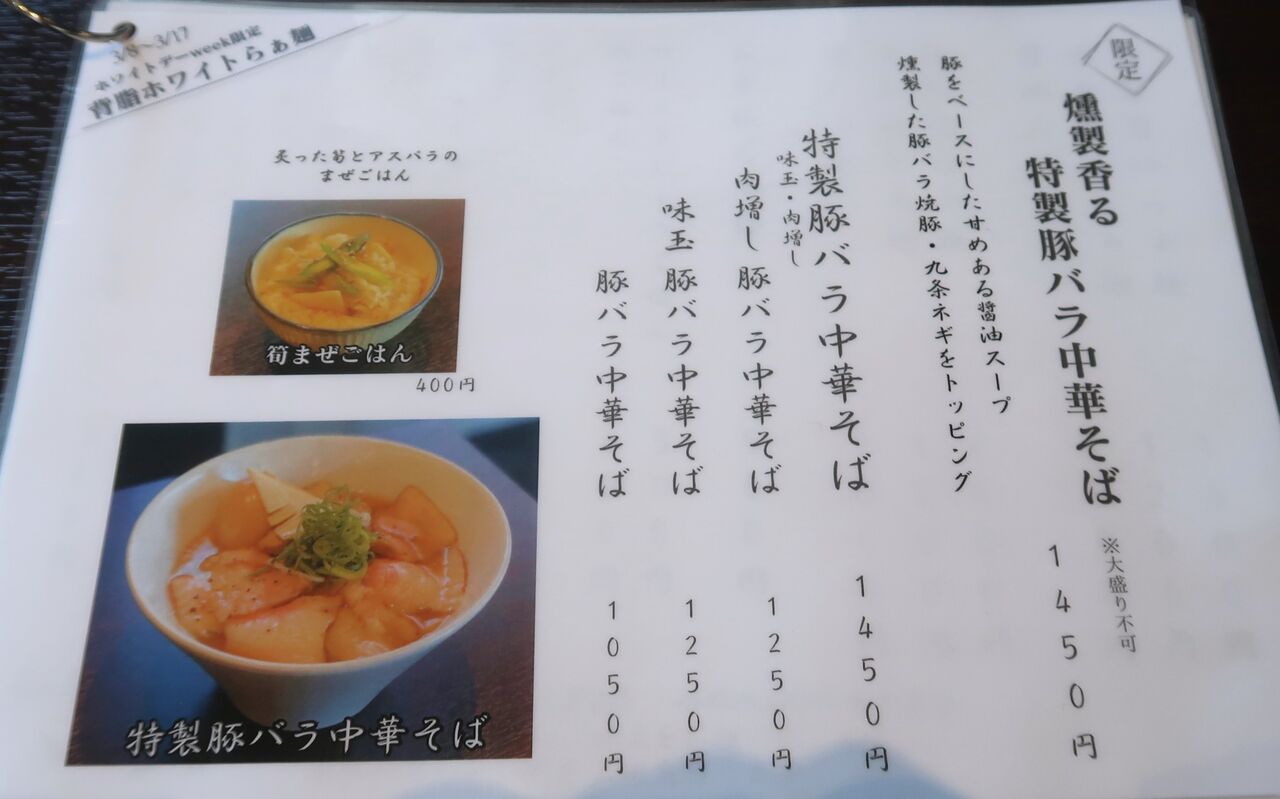 限定
燻製香る
特製豚バラ中華そば 1450円
※大盛り不可
豚をベースにした甘めある醤油スープ
燻製した豚バラ焼豚・九条ネギをトッピング
特製豚バラ中華そば 1450円
味玉・肉増し
肉増し豚バラ中華そば 1250円
味玉豚バラ中華そば 1250円
豚バラ中華そば 1050円
3/8~3/17
ホワイトデーweek限定
背脂ホワイトらぁ麺
炙った筍とアスパラの
まぜごはん
筍まぜごはん
400円
特製豚バラ中華そば